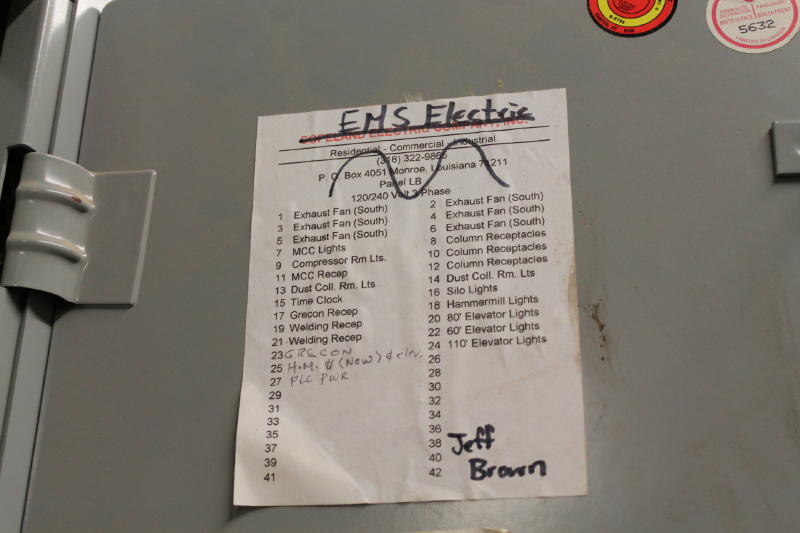 5632
EMS Electric
COPELAND ELECTRIC COMPANY, INC.
Residential - Commercial - Industrial
(318) 322-9865
P. O. Box 4051 Monroe, Louisiana 71211
Panel LB
120/240 Volt 3 Phase
1 Exhaust Fan (South) 2 Exhaust Fan (South)
3 Exhaust Fan (South) 4 Exhaust Fan (South)
5 Exhaust Fan (South) 6 Exhaust Fan (South)
7 MCC Lights 8 Column Receptacles
9 Compressor Rm Lts. 10 Column Receptacles
11 MCC Recep 12 Column Receptacles
13 Dust Coll. Rm. Lts 14 Dust Coll. Rm. Lts
15 Time Clock 16 Silo Lights
17 Grecon Recep 18 Hammermill Lights
19 Welding Recep 20 80' Elevator Lights
21 Welding Recep 22 60' Elevator Lights
23 GRECON 24 110' Elevator Lights
25 H.M. (New) & elev. 26
27 PLC PWR 28
29 30
31 32
33 34
35 36
37 38 Jeff
39 40
41 42 Brown